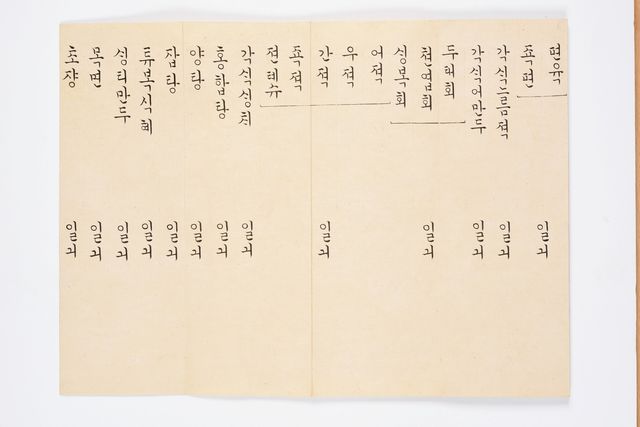 편육
족편 일긔
각식느름젹 일긔
각식어만두 일긔
두태회
쳔엽회 일긔
싱복회
어젹
우젹
간젹 일긔
족젹
젼톄슈
각식싱치 일긔
홍합탕 일긔
양탕 일긔
잡탕 일긔
츄복식혜 일긔
싱티만두 일긔
목면 일긔
초쟝 일긔